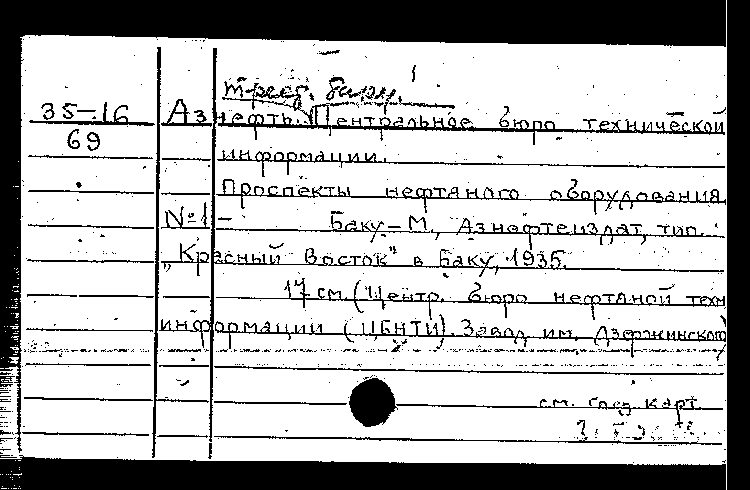 35-16
69
Азнефть. Центральное бюро технической
информации.
Проспекты нефтяного оборудования.
№1 - Баку-М., Азнефтеиздат, тип.
„Красный Восток" в Баку, 1935.
17 см. (Центр. бюро нефтяной техн
информации (ЦБНТИ). Завод им. Дзержинского)
см. след. карт.